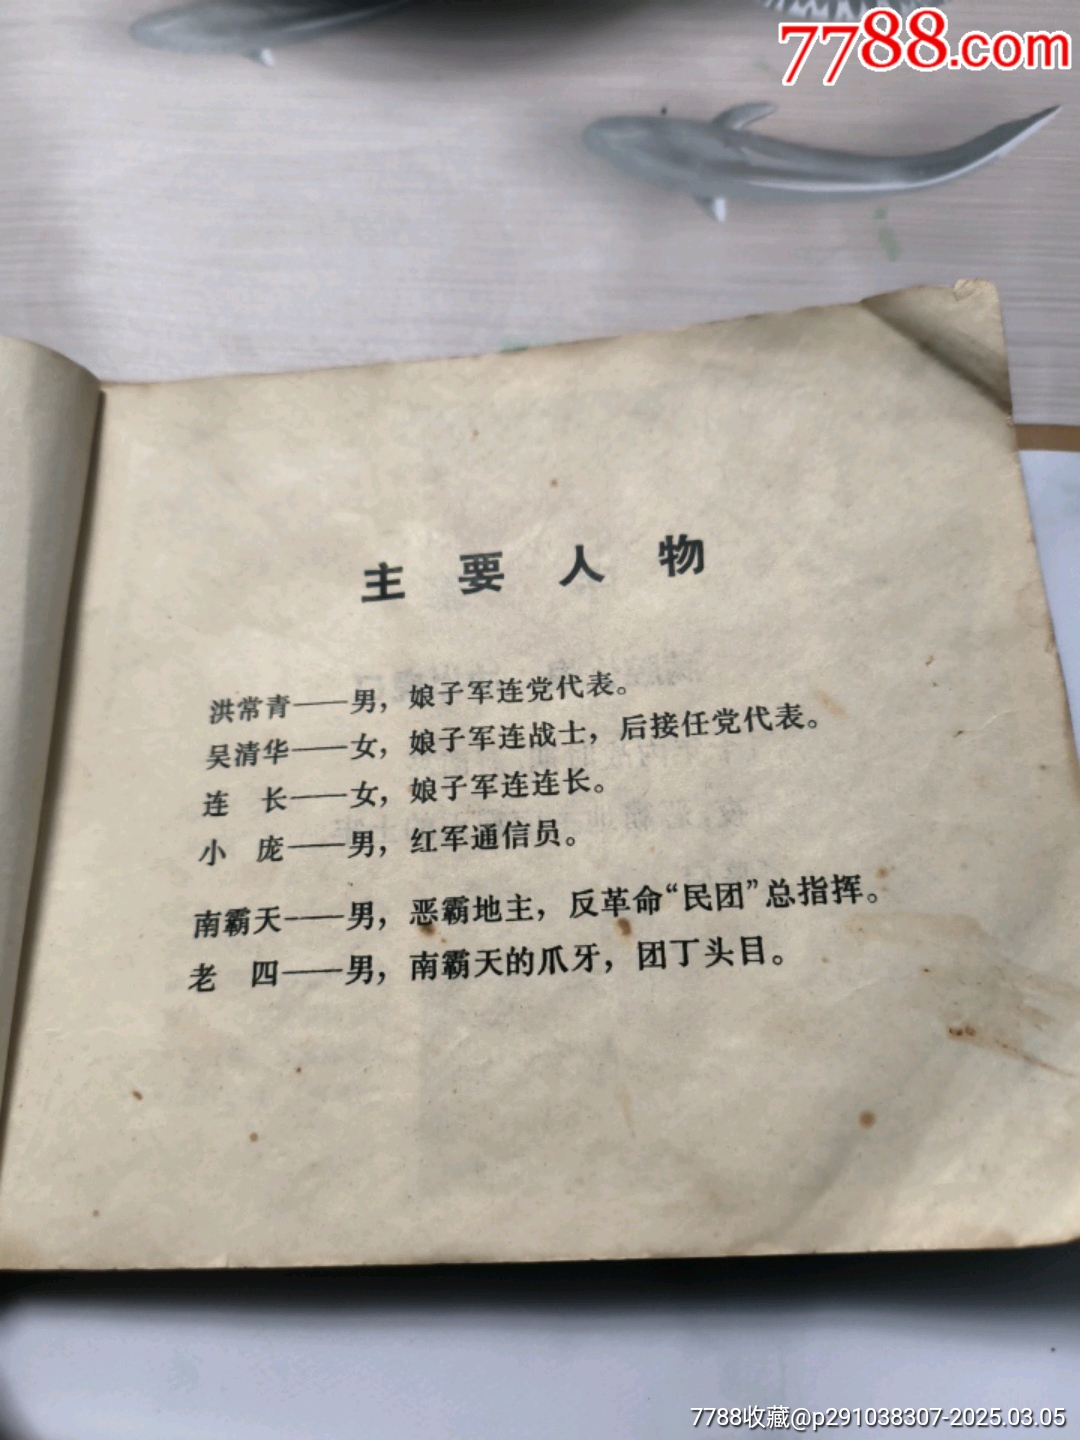 7788.com
主要人物
洪常青——男，娘子军连党代表。
吴清华——女，娘子军连战士，后接任党代表。
连　长——女，娘子军连连长。
小　庞——男，红军通信员。
南霸天——男，恶霸地主，反革命“民团”总指挥。
老　四——男，南霸天的爪牙，团丁头目。
7788收藏@p291038307-2025.03.05